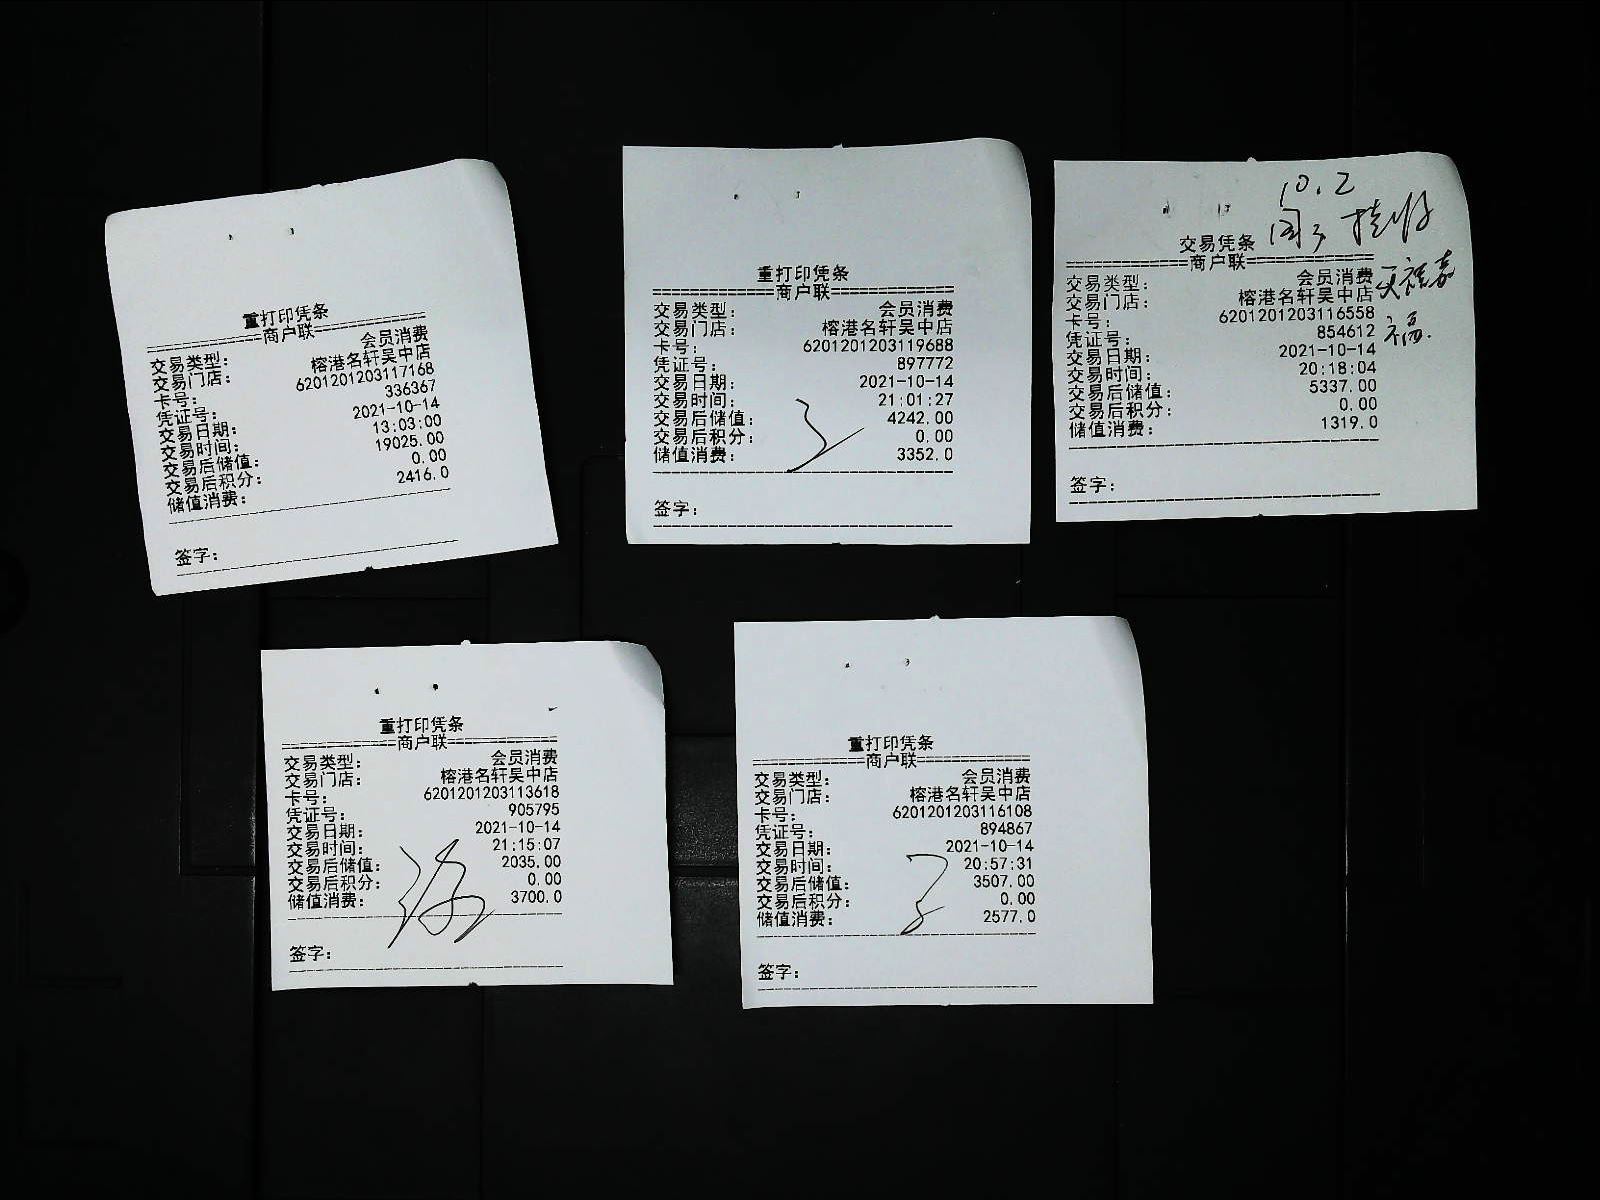 重打印凭条
============商户联============
交易类型： 会员消费
交易门店： 榕港名轩吴中店
卡号： 6201201203117168
凭证号： 336367
交易日期： 2021-10-14
交易时间： 13:03:00
交易后储值： 19025.00
交易后积分： 0.00
储值消费： 2416.0
签字：
重打印凭条
============商户联============
交易类型： 会员消费
交易门店： 榕港名轩吴中店
卡号： 6201201203119688
凭证号： 897772
交易日期： 2021-10-14
交易时间： 21:01:27
交易后储值： 4242.00
交易后积分： 0.00
储值消费： 3352.0
签字：
10.2
交易凭条
============商户联============
交易类型： 会员消费
交易门店： 榕港名轩吴中店
卡号： 6201201203116558
凭证号： 854612
交易日期： 2021-10-14
交易时间： 20:18:04
交易后储值： 5337.00
交易后积分： 0.00
储值消费： 1319.0
签字：
重打印凭条
============商户联============
交易类型： 会员消费
交易门店： 榕港名轩吴中店
卡号： 6201201203113618
凭证号： 905795
交易日期： 2021-10-14
交易时间： 21:15:07
交易后储值： 2035.00
交易后积分： 0.00
储值消费： 3700.0
签字：
重打印凭条
============商户联============
交易类型： 会员消费
交易门店： 榕港名轩吴中店
卡号： 6201201203116108
凭证号： 894867
交易日期： 2021-10-14
交易时间： 20:57:31
交易后储值： 3507.00
交易后积分： 0.00
储值消费： 2577.0
签字：